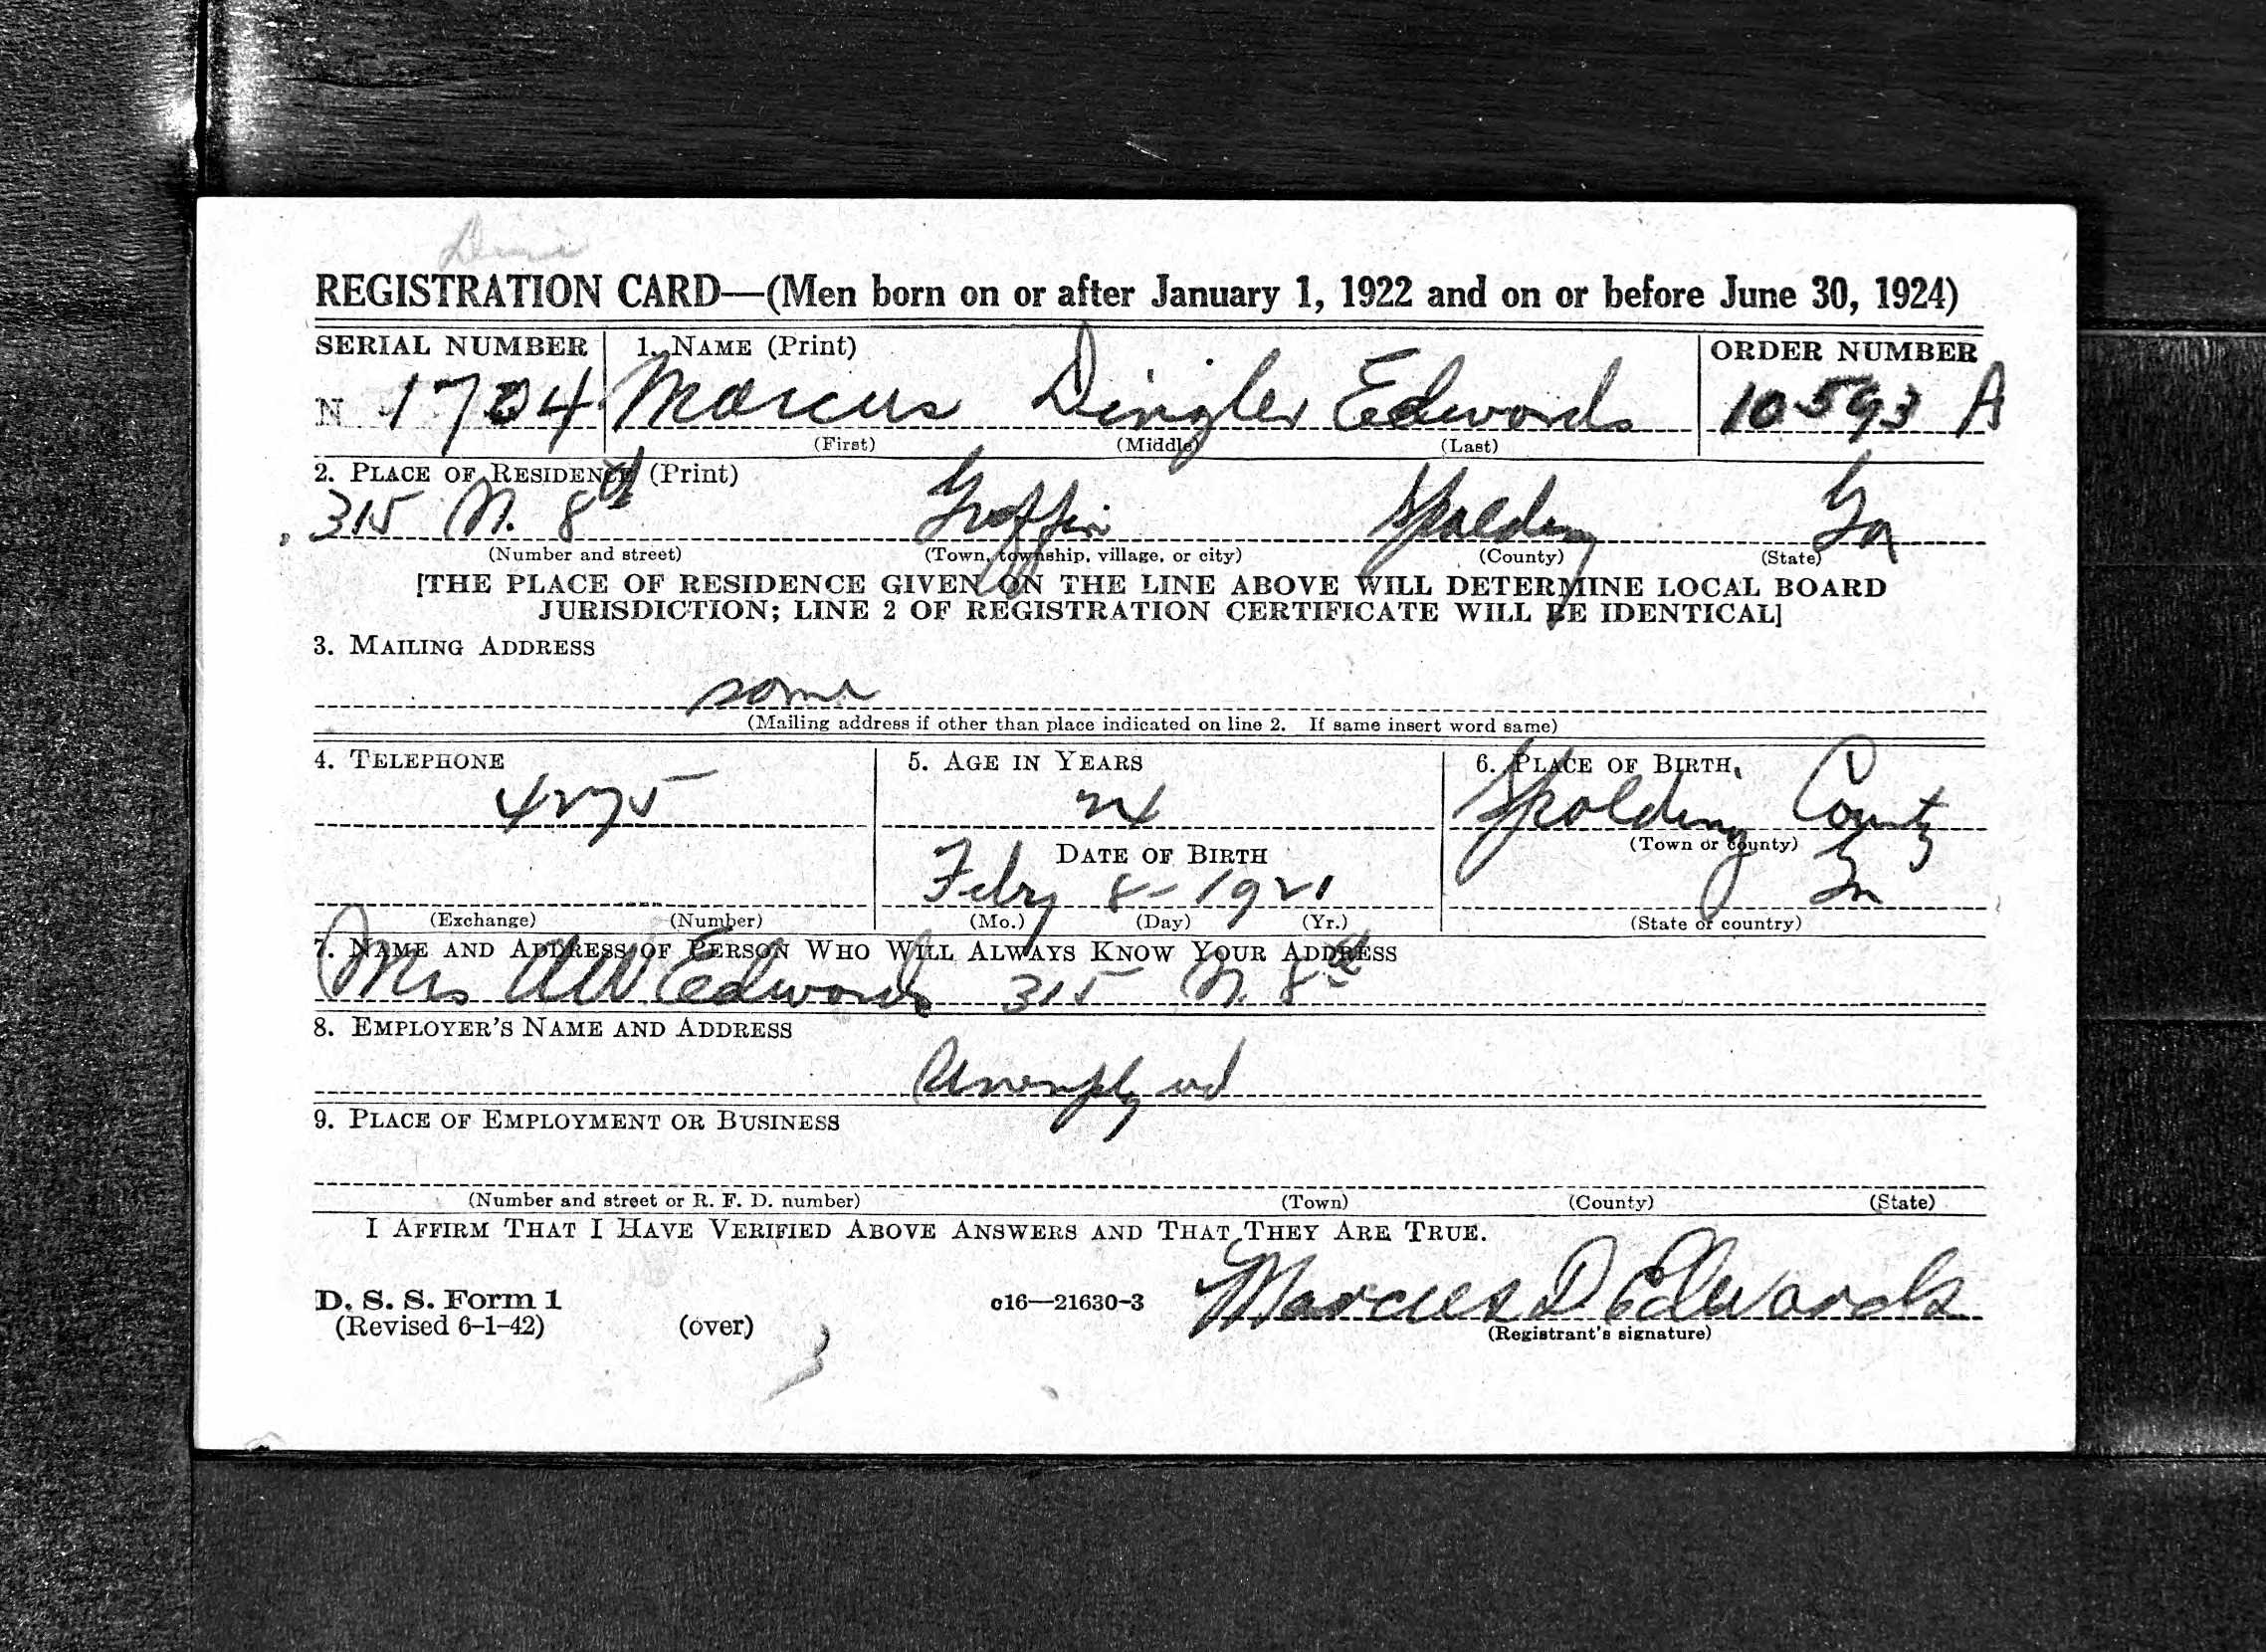 REGISTRATION CARD—(Men born on or after January 1, 1922 and on or before June 30, 1924)
SERIAL NUMBER 1. NAME (Print) ORDER NUMBER
N 1724 Marcus Dingler Edwards 10593 A
(First) (Middle) (Last)
2. PLACE OF RESIDENCE (Print)
315 N. 8th Griffin Spalding Ga
(Number and street) (Town, township, village, or city) (County) (State)
[THE PLACE OF RESIDENCE GIVEN ON THE LINE ABOVE WILL DETERMINE LOCAL BOARD
JURISDICTION; LINE 2 OF REGISTRATION CERTIFICATE WILL BE IDENTICAL]
3. MAILING ADDRESS
same
(Mailing address if other than place indicated on line 2. If same insert word same)
4. TELEPHONE 5. AGE IN YEARS 6. PLACE OF BIRTH
4275 Spalding County
(Town or county)
DATE OF BIRTH
Feby 8-1921 Ga
(Exchange) (Number) (Mo.) (Day) (Yr.) (State or country)
7. NAME AND ADDRESS OF PERSON WHO WILL ALWAYS KNOW YOUR ADDRESS
Mrs Edwards 315 N. 8th
8. EMPLOYER'S NAME AND ADDRESS
Unemployed
9. PLACE OF EMPLOYMENT OR BUSINESS
(Number and street or R. F. D. number) (Town) (County) (State)
I AFFIRM THAT I HAVE VERIFIED ABOVE ANSWERS AND THAT THEY ARE TRUE.
D. S. S. Form 1 c16—21630-3 Marcus D. Edwards
(Revised 6-1-42) (over) (Registrant's signature)